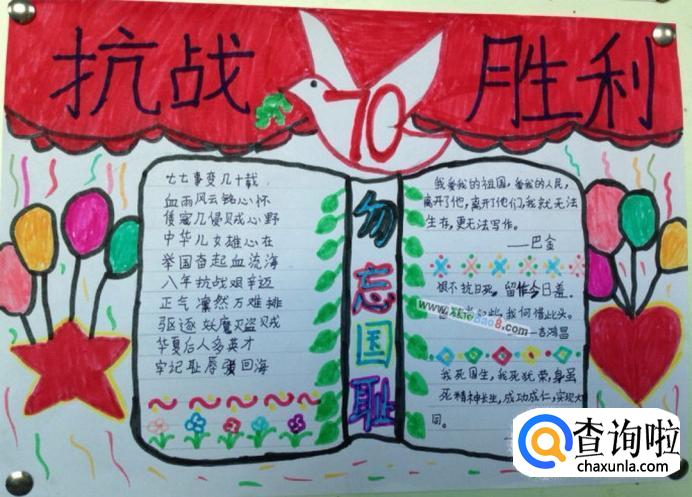 抗战
70
胜利
七七事变几十载
血雨风云铭心怀
倭寇几侵贼心野
中华儿女雄心在
举国奋起血流海
八年抗战艰辛迈
正气凛然万难排
驱逐妖魔灭盗贼
华夏后人多英才
牢记耻辱爱回海
勿忘国耻
我爱我的祖国，爱我的人民，
离开了他，离开了他们，我就无法
生存，更无法写作。
——巴金
恨不抗日死，留作今日羞。
我何惜此头。
—吉鸿昌
我死国生，我死犹荣，身虽
死精神长生，成功成仁，实现大
同。
查询啦
chaxunla.com